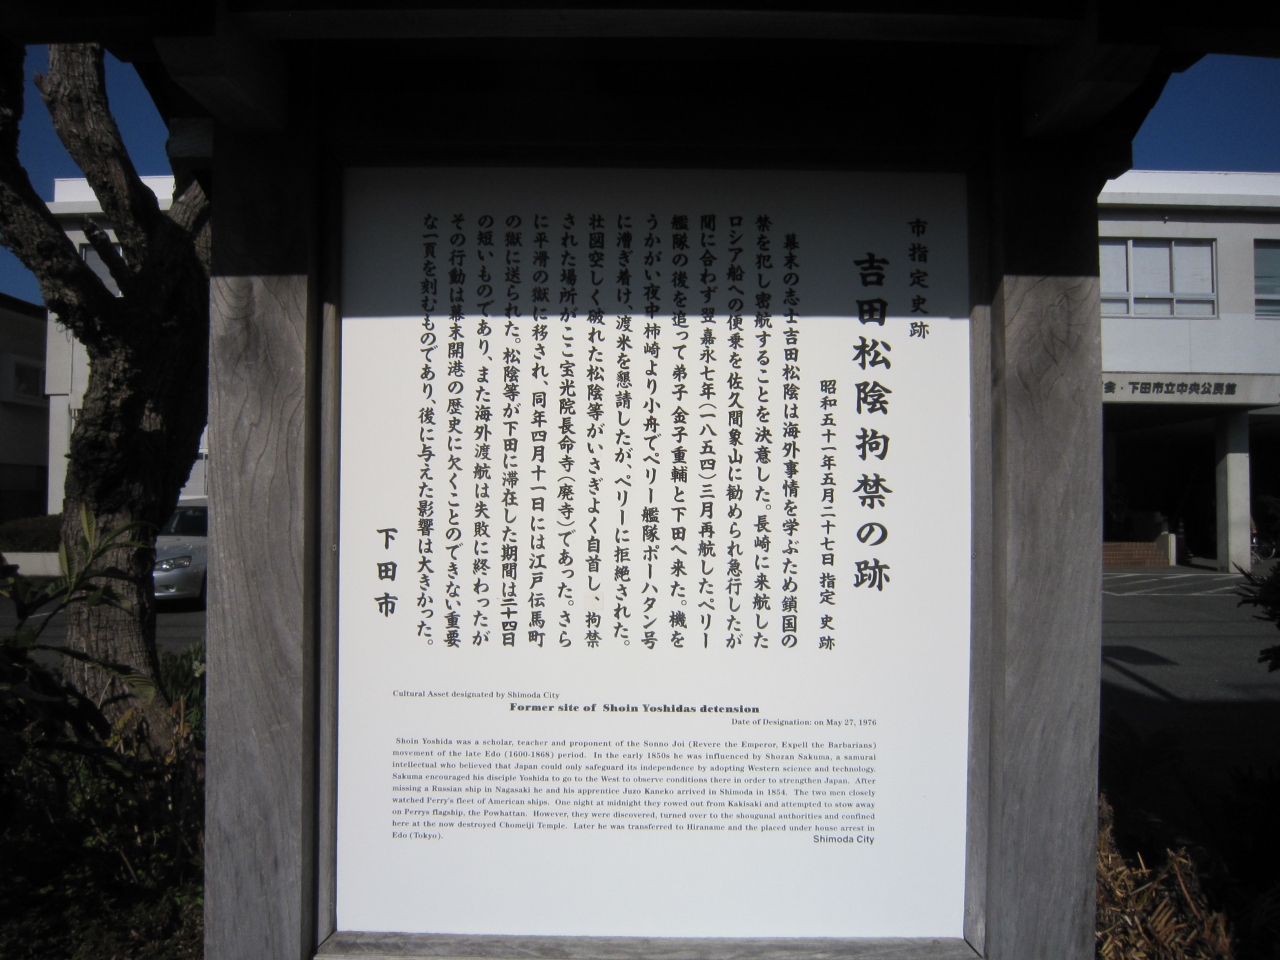 市指定史跡
吉田松陰拘禁の跡
昭和五十一年五月二十七日 指定 史 跡
幕末の志士吉田松陰は海外事情を学ぶため鎖国の
禁を犯し密航することを決意した。長崎に来航した
ロシア船への便乗を佐久間象山に勧められ急行したが
間に合わず翌嘉永七年(一八五四)三月再航したペリー
艦隊の後を追って弟子 金子重輔と下田へ来た。機を
うかがい夜中柿崎より小舟でペリー艦隊ポーハタン号
に漕ぎ着け、渡米を懇請したが、ペリーに拒絶された。
壮図空しく破れた松陰等がいさぎよく自首し、拘禁
された場所がここ宝光院長命寺(廃寺)であった。さら
に平滑の獄に移され、同年四月十一日には江戸伝馬町
の獄に送られた。松陰等が下田に滞在した期間は二十四日
の短いものであり、また海外渡航は失敗に終わったが
その行動は幕末開港の歴史に欠くことのできない重要
な一頁を刻むものであり、後に与えた影響は大きかった。
下田市
Cultural Asset designated by Shimoda City
Former site of Shoin Yoshidas detension
Date of Designation: on May 27, 1976
Shoin Yoshida was a scholar, teacher and proponent of the Sonno Joi (Revere the Emperor, Expell the Barbarians)
movement of the late Edo (1600-1868) period. In the early 1850s he was influenced by Shozan Sakuma, a samurai
intellectual who believed that Japan could only safeguard its independence by adopting Western science and technology.
Sakuma encouraged his disciple Yoshida to go to the West to observe conditions there in order to strengthen Japan. After
missing a Russian ship in Nagasaki he and his apprentice Juzo Kaneko arrived in Shimoda in 1854. The two men closely
watched Perry's fleet of American ships. One night at midnight they rowed out from Kakisaki and attempted to stow away
on Perrys flagship, the Powhattan. However, they were discovered, turned over to the shougunal authorities and confined
here at the now destroyed Chomeiji Temple. Later he was transferred to Hiraname and the placed under house arrest in
Edo (Tokyo).
Shimoda City
会・下田市立中央公民館